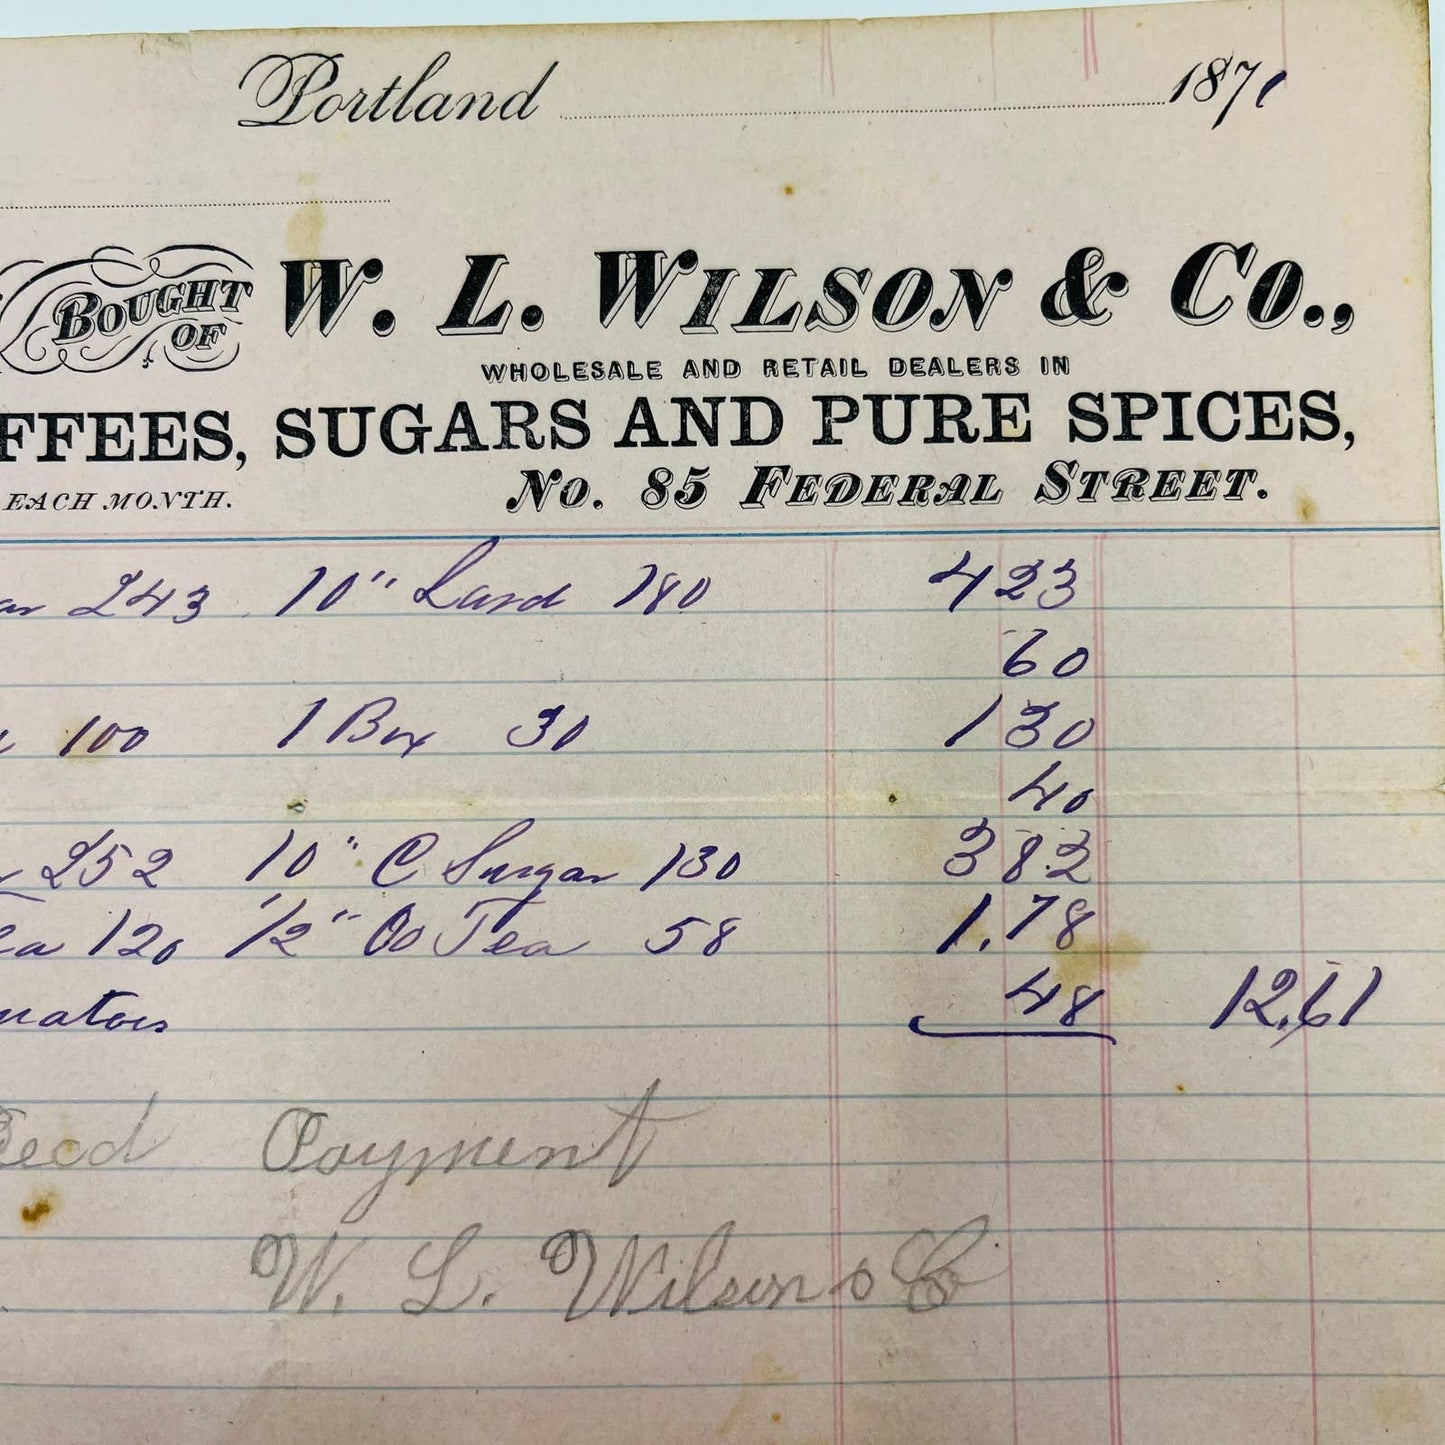 Portland 1871
BOUGHT OF W. L. WILSON & CO.,
WHOLESALE AND RETAIL DEALERS IN
FFEES, SUGARS AND PURE SPICES,
EACH MONTH. No. 85 FEDERAL STREET.
ar 243 10" Lard 180 423
60
100 1 Box 30 130
40
252 10" C Sugar 130 382
ea 120 1/2" Oo Tea 58 1.78
matoes 48 12.61
Recd Payment
W. L. Wilson & Co